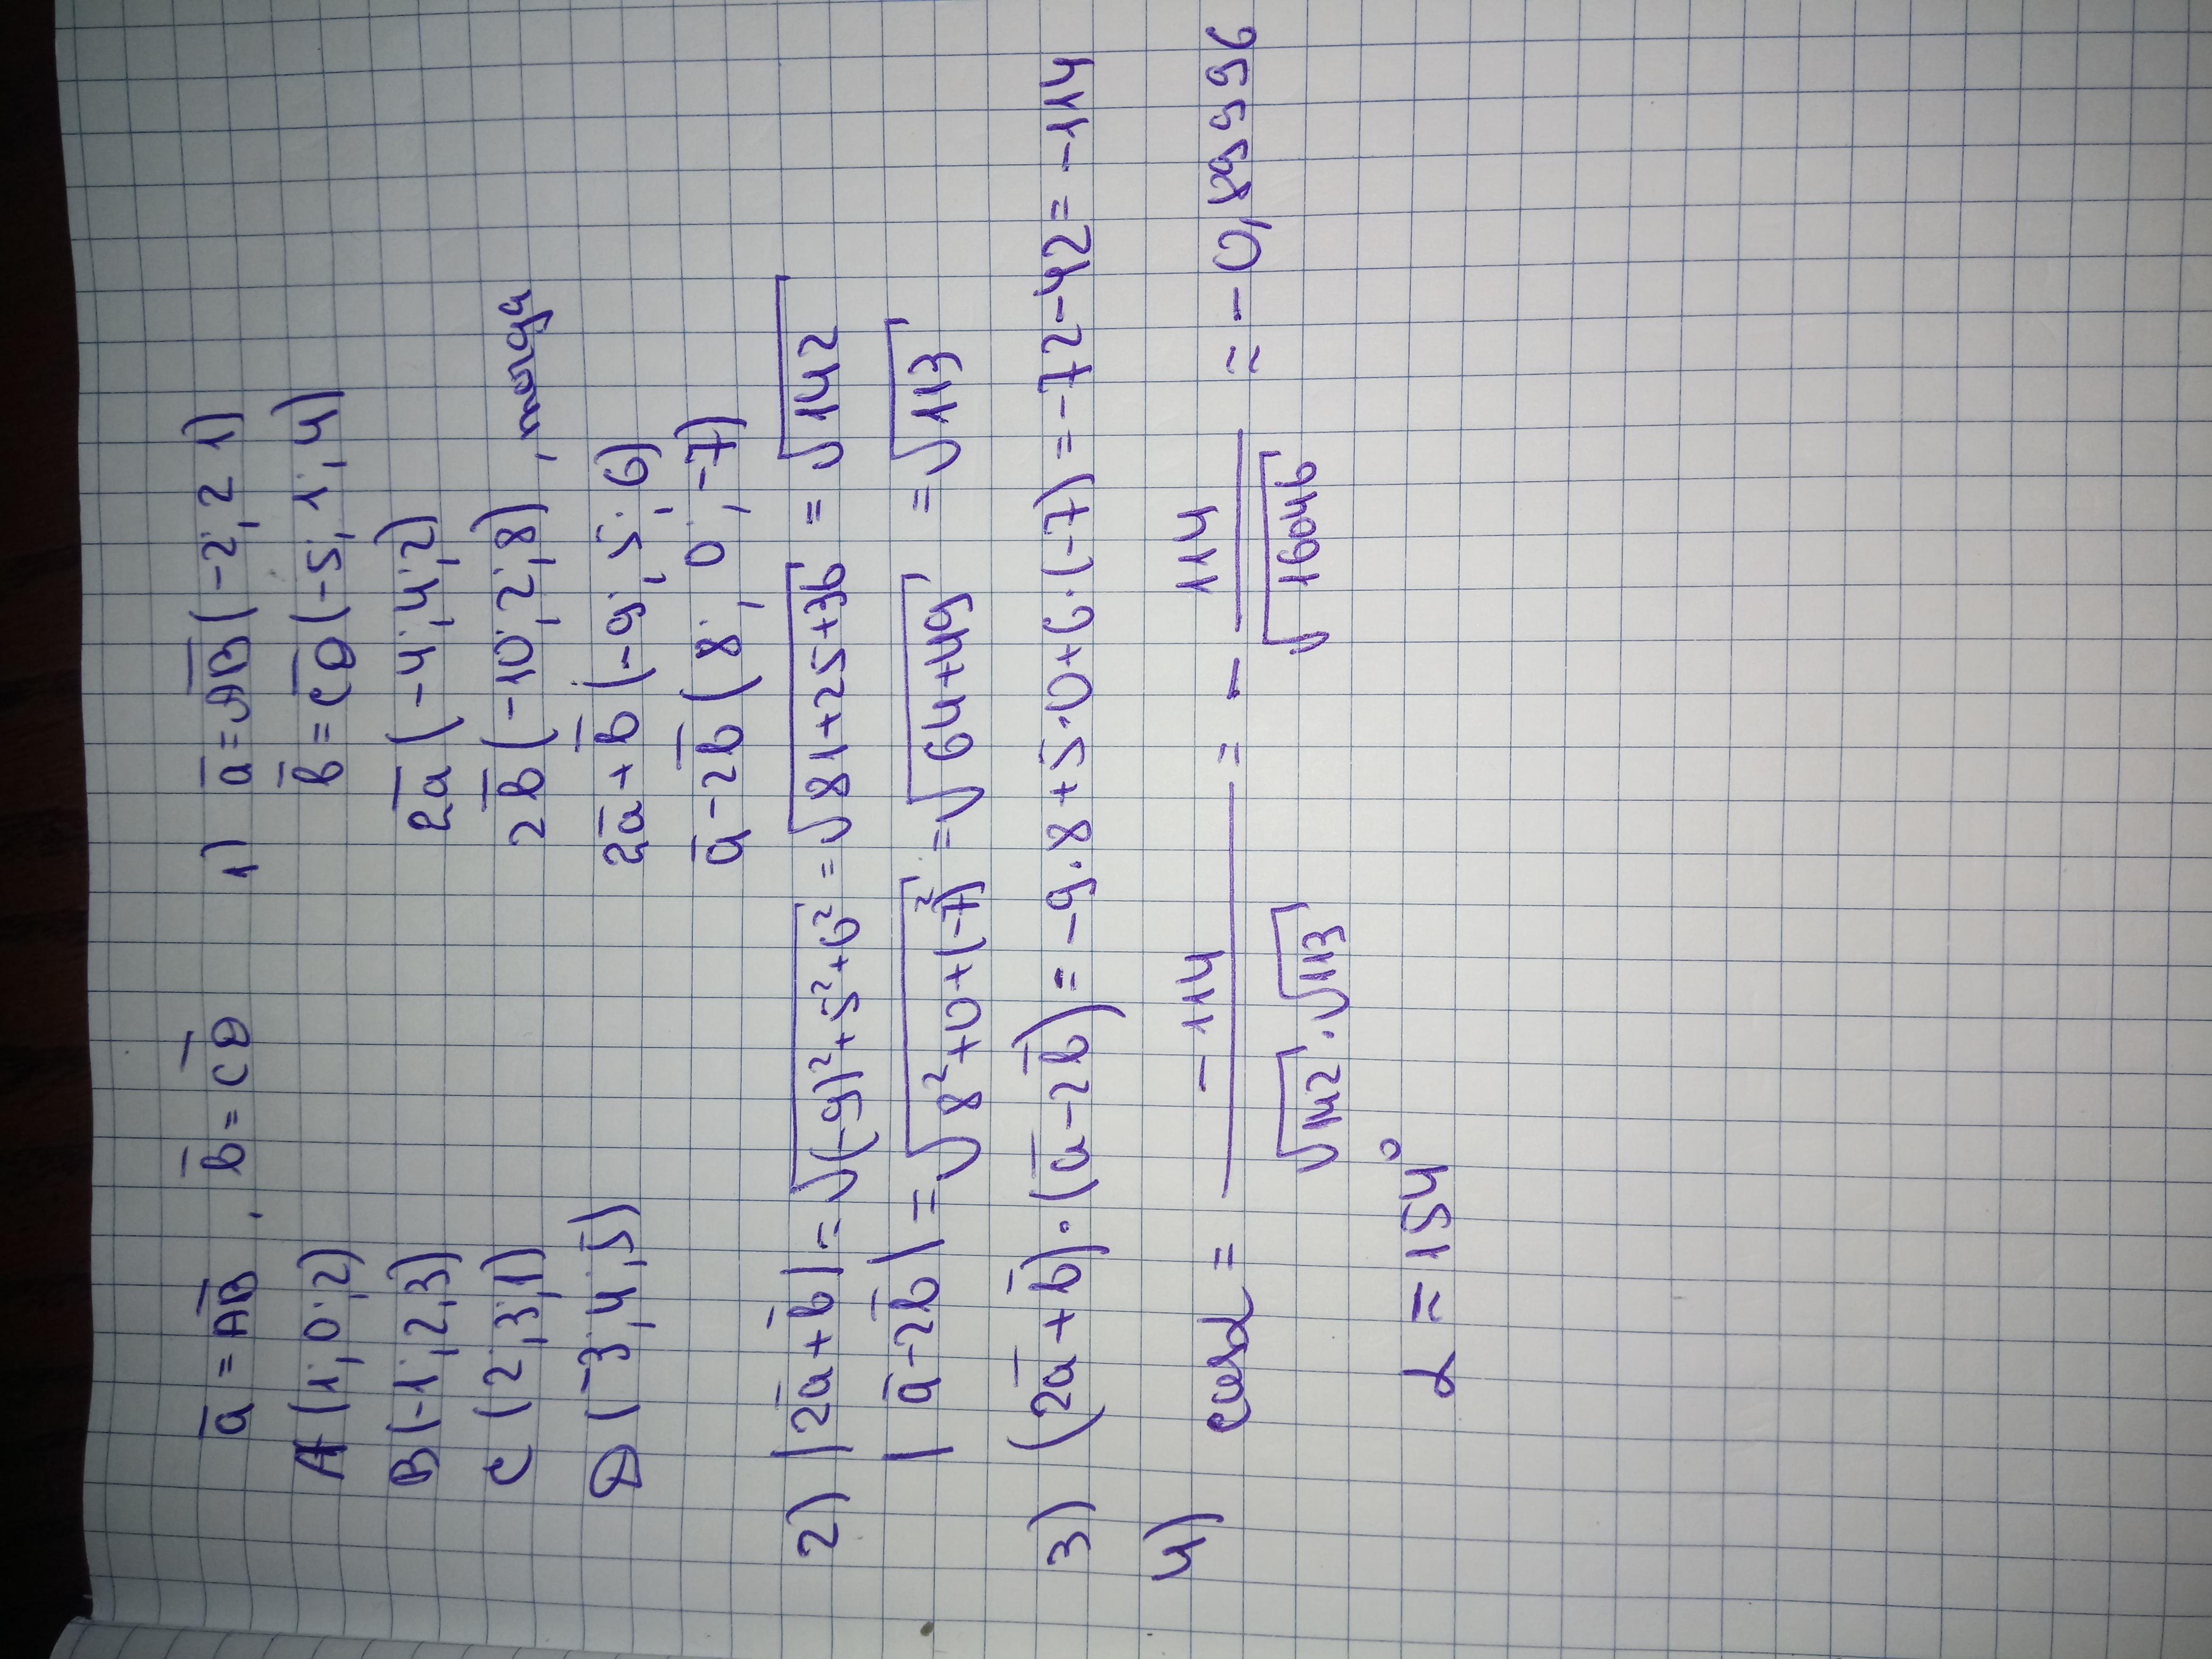 a̅ = A̅B̅, b̅ = C̅D̅
A (1; 0; 2)
B (-1; 2; 3)
C (2; 3; 1)
D (-3; 4; 5)
1) a̅ = A̅B̅ (-2; 2 1)
b̅ = C̅D̅ (-5; 1; 4)
2a̅ (-4; 4; 2)
2b̅ (-10; 2; 8), тогда
2a̅ + b̅ (-9; 5; 6)
a̅ - 2b̅ (8; 0; -7)
2) |2a̅ + b̅| = √((-9)² + 5² + 6²) = √(81+25+36) = √142
|a̅ - 2b̅| = √(8² + 0 + (-7)²) = √(64+49) = √113
3) (2a̅ + b̅) · (a̅ - 2b̅) = -9·8 + 5·0 + 6·(-7) = -72 - 42 = -114
4) cosα = -114 / (√142 · √113) = - 114 / √16046 ≈ -0,89996
α ≈ 154°